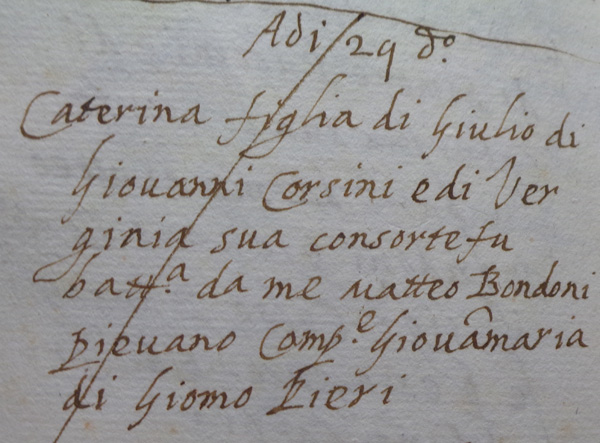 Adi 29 d.º
Caterina figlia di Giulio di
Giouanni Corsini e di Ver
ginia sua consorte fu
batt.ª da me Matteo Bondoni
pieuano Comp.e Giouãmaria
di Giomo Pieri